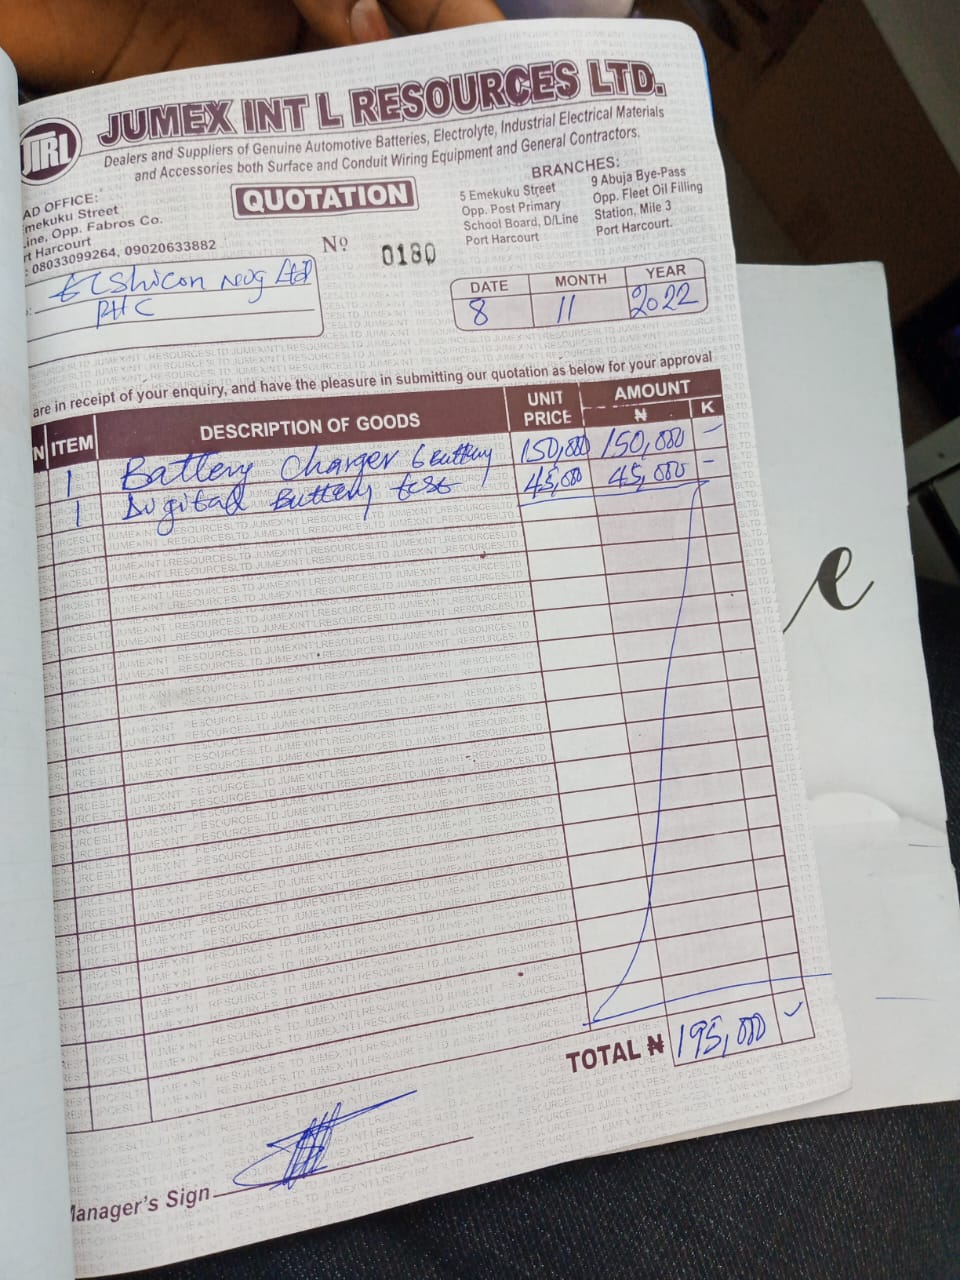 JUMEX INT L RESOURCES LTD.
JIRL
Dealers and Suppliers of Genuine Automotive Batteries, Electrolyte, Industrial Electrical Materials
and Accessories both Surface and Conduit Wiring Equipment and General Contractors.
QUOTATION
AD OFFICE:
mekuku Street
ine, Opp. Fabros Co.
rt Harcourt
: 08033099264, 09020633882
BRANCHES:
5 Emekuku Street
Opp. Post Primary
School Board, D/Line
Port Harcourt
9 Abuja Bye-Pass
Opp. Fleet Oil Filling
Station, Mile 3
Port Harcourt.
Nº 0180
Ltd
PHC
DATE MONTH YEAR
8 11 2022
are in receipt of your enquiry, and have the pleasure in submitting our quotation as below for your approval
N ITEM DESCRIPTION OF GOODS UNIT PRICE AMOUNT ₦ K
1 Battery Charger 6 Battery 150,000 150,000 -
1 Digital Battery test 45,000 45,000 -
TOTAL ₦ 195,000 -
Manager's Sign
e